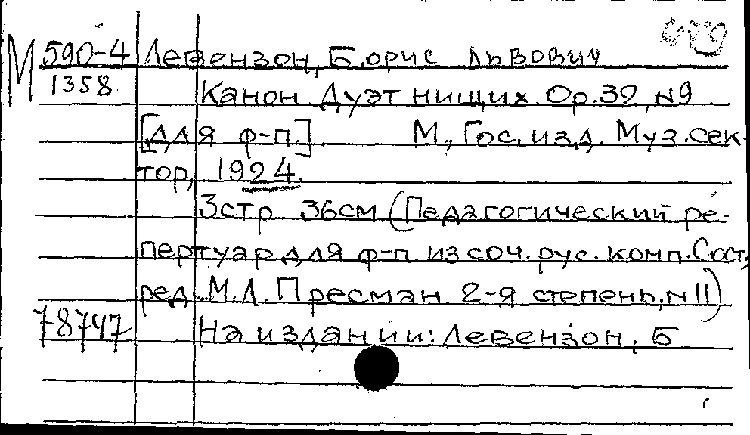 М 590-4 Левензон, Борис Львович
1358 Канон. Дуэт нищих. Ор.39, №9
[для ф-п.]. М., Гос. изд. Муз. сек-
тор, 1924.
3стр 36см (Педагогический ре-
пертуар для ф-п из соч. рус. комп. Сост,
ред. М.Л. Пресман 2-я степень, №11)
78747 На издании: Левензон, Б